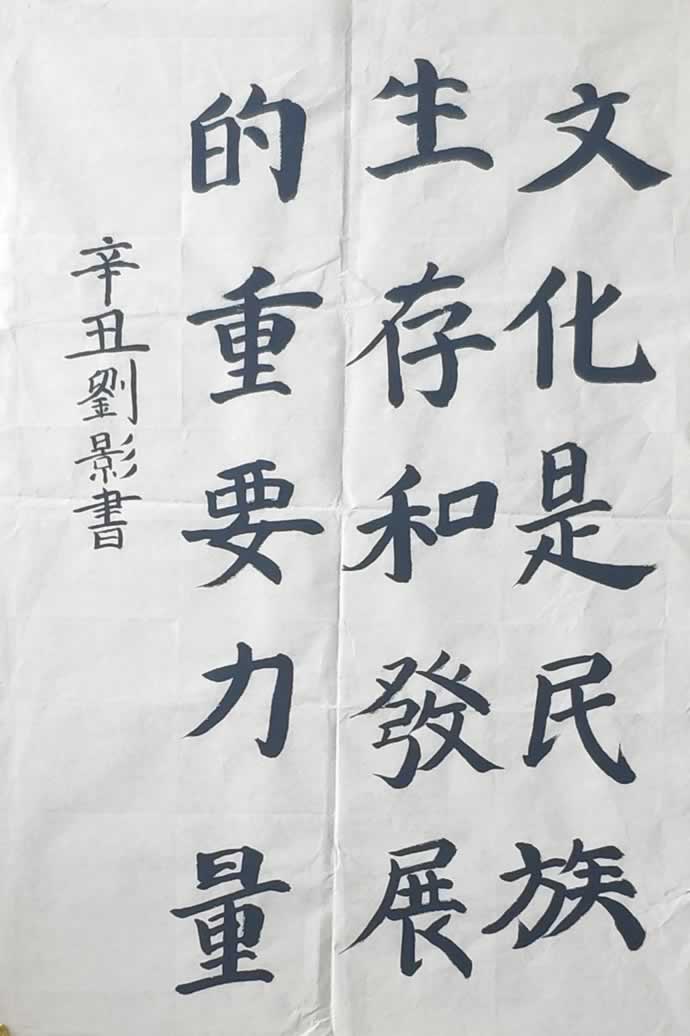 文化是民族
生存和發展
的重要力量
辛丑劉影書